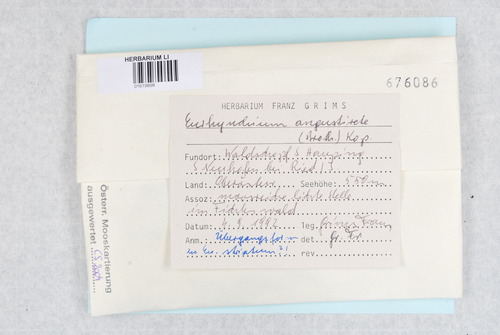 HERBARIUM LI
676086
HERBARIUM FRANZ GRIMS
Eurhynchium angustirete
(Broth.) Kop.
Fundort: Waldsumpf S Hauping
S Neuhofen bei Ried i. I.
Land: Oberösterr. Seehöhe: 550m
Assoz: moosreiche lichte Stelle
im Fichtenwald
Datum: 4.8.1992 leg. Grims Franz
Anm.: Übergangsform det. Gr. Fr.
zu Eu. striatum?! rev.
Österr. Mooskartierung
ausgewertet